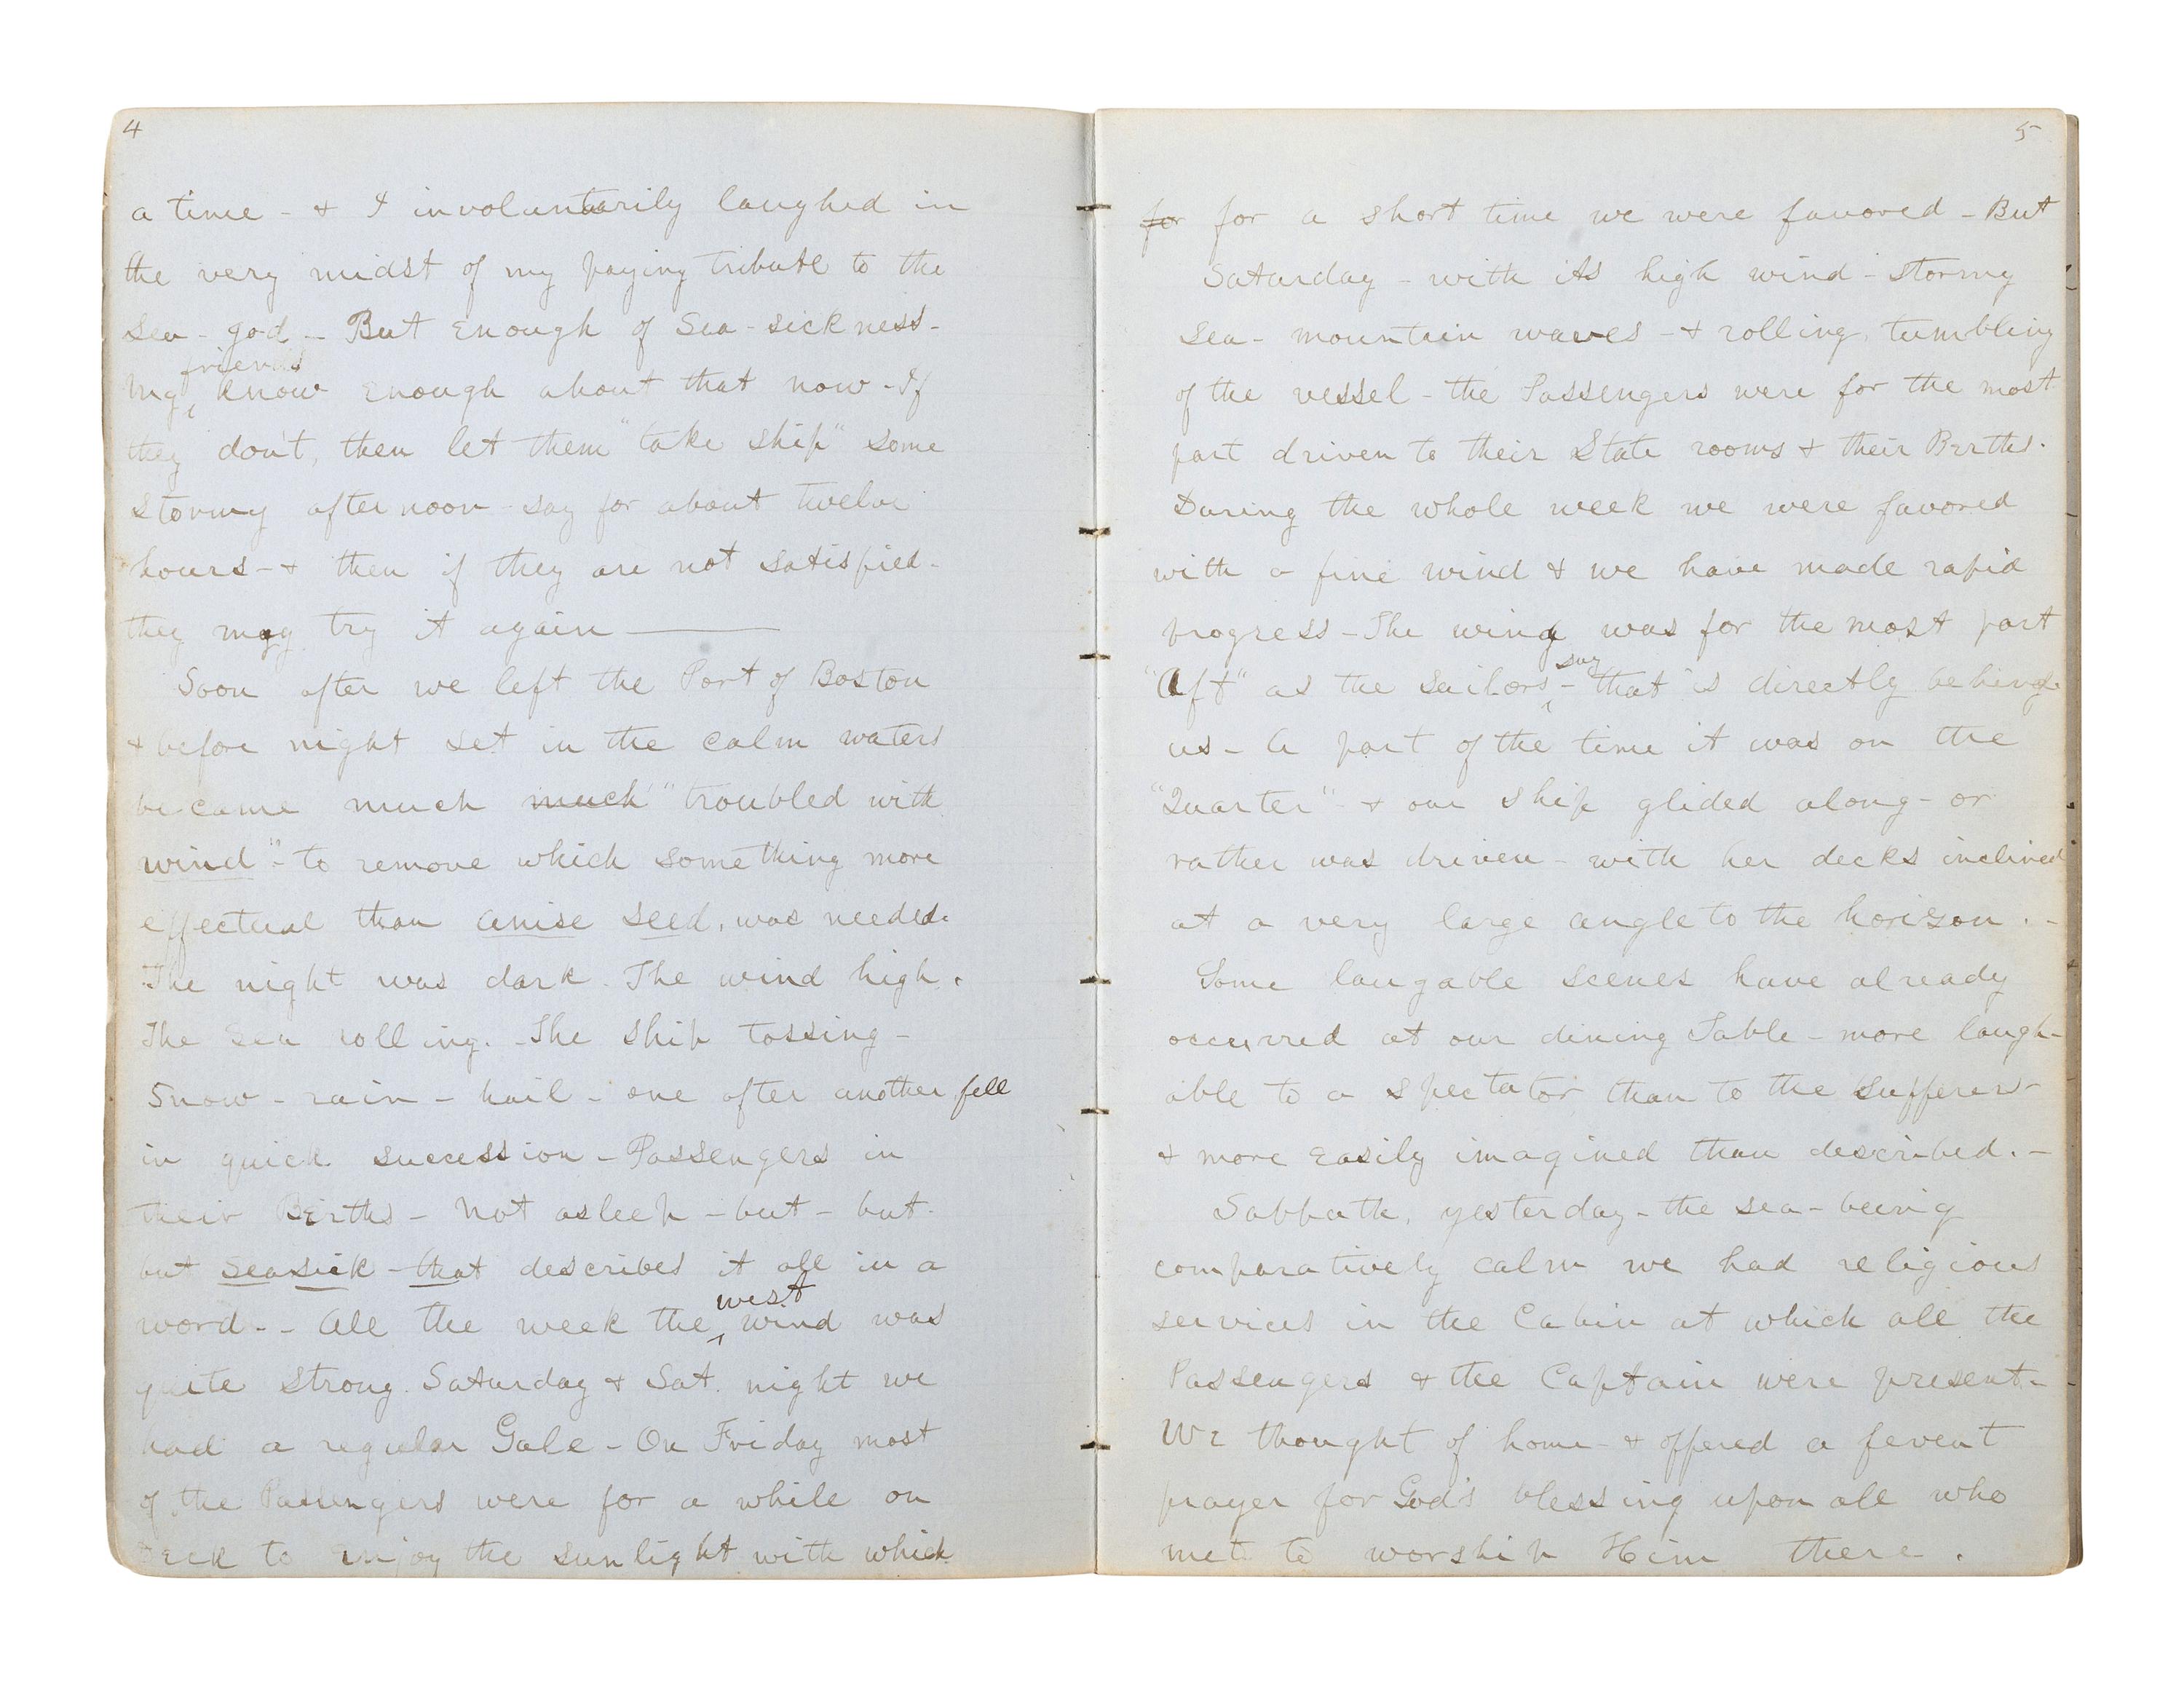 4
a time - & I involuntarily laughed in
the very midst of my paying tribute to the
Sea-god - But enough of Sea-sickness-
friends
My ‸ know enough about that now - If
they don't, then let them "take ship" some
stormy afternoon - say for about twelve
hours - & then if they are not satisfied -
they may try it again ———
Soon after we left the Port of Boston
& before night set in the calm waters
became much much "troubled with
wind" - to remove which something more
effectual than anise seed, was needed.
The night was dark. The wind high.
The Sea rolling. - The ship tossing -
Snow - rain - hail - one after another fell
in quick succession - Passengers in
their Births - Not asleep - but - but -
but seasick - that describes it all in a
west
word - - All the week the ‸ wind was
quite strong. Saturday & Sat. night we
had a regular Gale - On Friday most
of the Passengers were for a while on
Deck to enjoy the sunlight with which
5
for for a short time we were favored - But
Saturday - with its high wind - stormy
sea - mountain waves - & rolling, tumbling
of the vessel - the Passengers were for the most
part driven to their State rooms & their Births.
During the whole week we were favored
with a fine wind & we have made rapid
progress - The wind was for the most part
say
"Aft" as the sailors ‸ - that is directly behind
us - A part of the time it was on the
"Quarter" - & our ship glided along - or
rather was driven - with her decks inclined
at a very large angle to the horizon. -
Some laugable scenes have already
occurred at our dining Table - more laugh-
able to a spectator than to the sufferers -
& more easily imagined than described. -
Sabbath, yesterday - the sea - being
comparatively calm we had religious
services in the Cabin at which all the
Passengers & the Captain were present -
We thought of home - & offered a fevent
prayer for God's blessing upon all who
met to worship Him there.